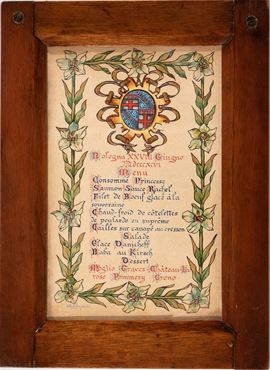 Bologna XXVIII Giugno
Mdcccxcvi
Menu
Consommé Princesse
Saumon Sauce Rachel
Filet de Bœuf glacé à la
souveraine
Chaud-froid de côtelettes
de poularde en suprême
Cailles sur canapé au cresson
Salade
Glace Danicheff
Baba au Kirsch
Dessert
Moglio Graves Château La
rose Pommery Greno